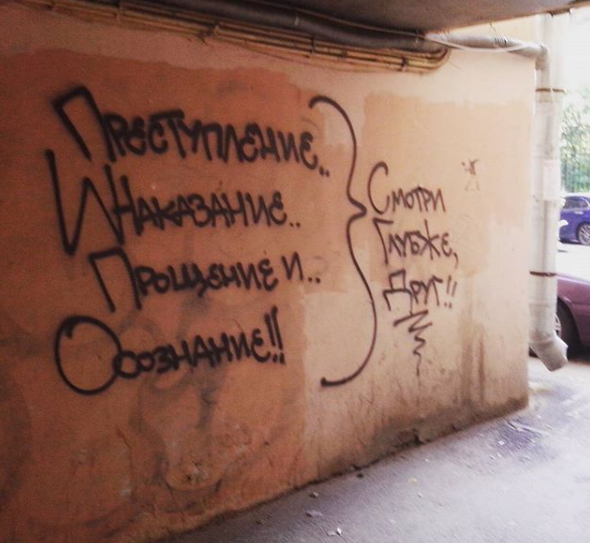 Преступление..
И Наказание..
Прощение и..
Осознание!!
Смотри
Глубже,
Друг!!